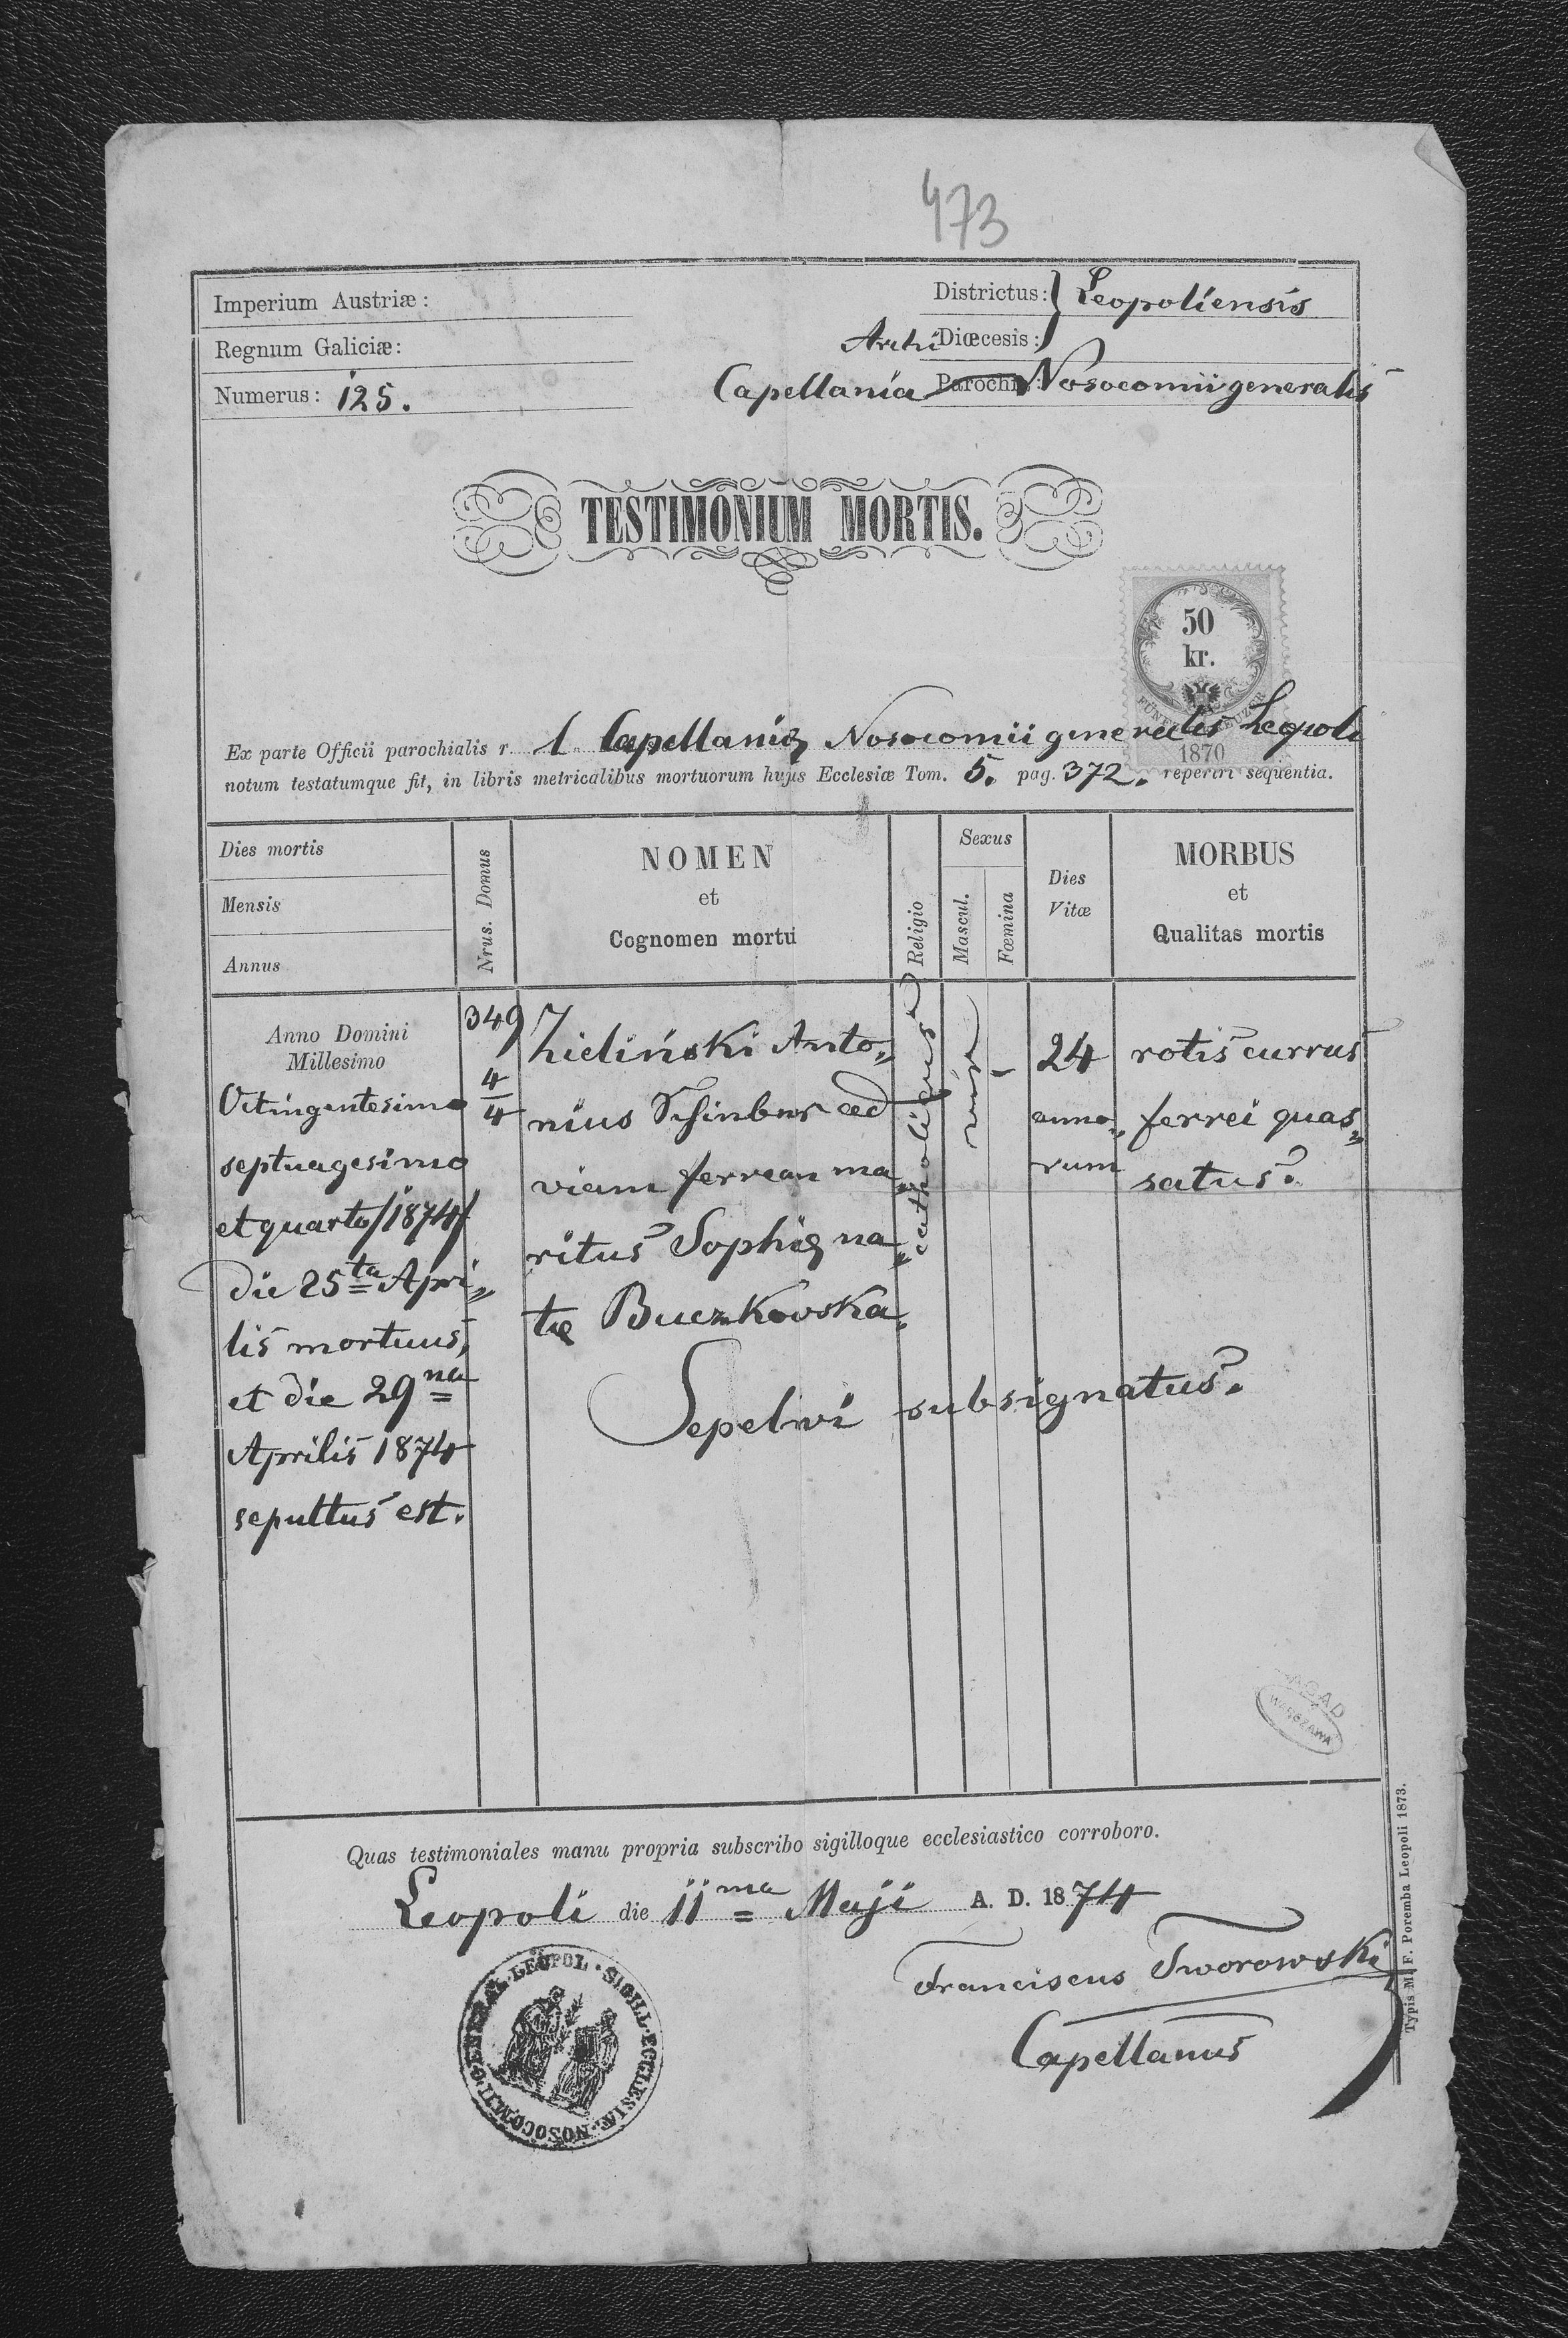 473
Imperium Austriæ:
Districtus: Leopoliensis
Regnum Galiciæ:
Archi Diœcesis:
Numerus: 125.
Capellania Parochia: Nosocomii generalis
TESTIMONIUM MORTIS.
50
kr.
1870
Ex parte Officii parochialis r. l. Capellaniæ Nosocomii generalis Leopoli
notum testatumque fit, in libris metricalibus mortuorum hujus Ecclesiæ Tom. 5. pag. 372. reperiri sequentia.
Dies mortis
Mensis
Annus
Nrus. Domus
NOMEN
et
Cognomen mortui
Religio
Sexus
Mascul.
Fœmina
Dies
Vitæ
MORBUS
et
Qualitas mortis
Anno Domini
Millesimo
Octingentesimo
septuagesimo
et quarto /1874/
die 25ta Apri„
lis mortuus,
et die 29na
Aprilis 1874
sepultus est.
349
4
4
Zieliński Anto„
nius ad
viam ferream ma„
ritus Sophiæ na„
tæ Buczkovska.
catholicus
vir
-
24
anno„
rum
rotis currus
ferrei quas„
satus.
Sepelivi subsignatus.
AGAD
WARSZAWA
Quas testimoniales manu propria subscribo sigilloque ecclesiastico corroboro.
Leopoli die 11ma Maji A. D. 1874
Franciscus Tworowski
Capellanus
SIGILL·ECCLESIÆ·NOSOCOMII·GENERAL·LEOPOL·
Typis M. F. Poremba Leopoli 1873.